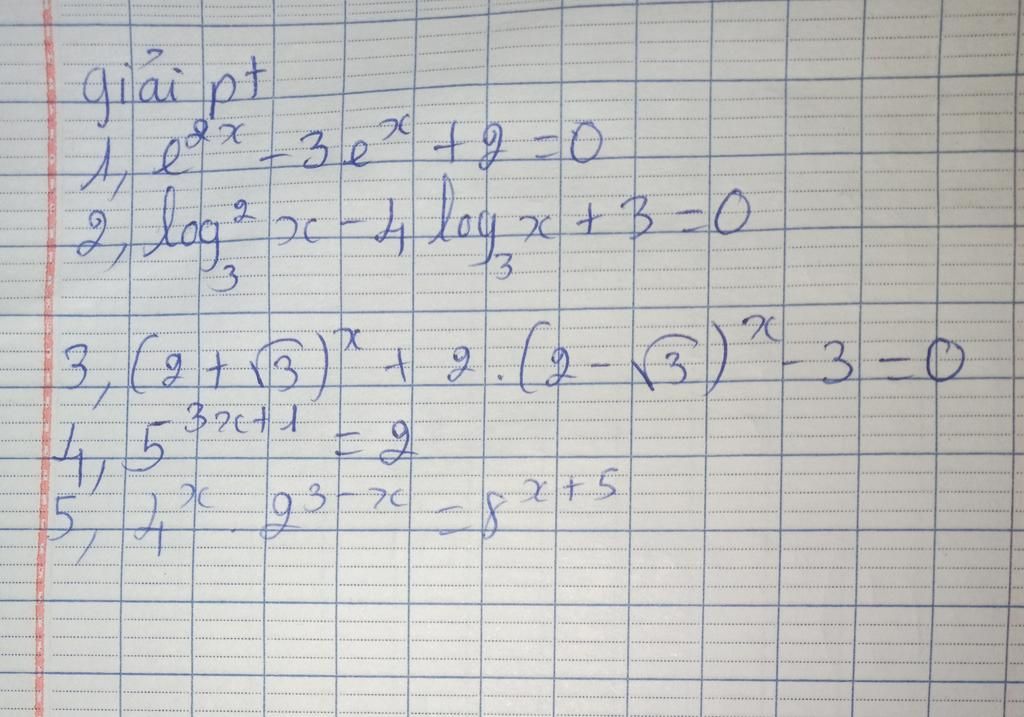 giải pt
1, e^{2x} - 3e^x + 2 = 0
2, log_3^2 x - 4 log_3 x + 3 = 0
3, (2 + √3)^x + 2.(2 - √3)^x - 3 = 0
4, 5^{3x+1} = 2
5, 4^x . 2^{3-x} = 8^{x+5}